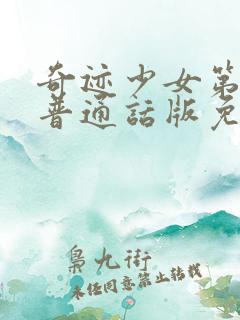 奇迹少女第
普通話版免
梟九街
未经同意禁止转载